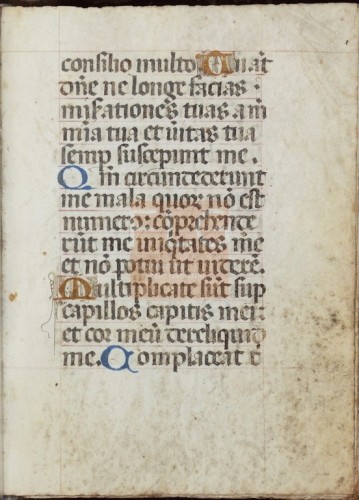 consilio multo Tu aut̄
dn̄e ne longe facias
mis̄ationes tuas a m̄
mīa tua et ūitas tua
semp suscepunt me.
Qm̄ circundederunt
me mala quor nō est
numero: cōprehende
rūt me iniq̄tates mē
et nō potui ut uiderē.
Multiplicate sūt sup
capillos capitis mei:
et cor meū dereliquid
me. Complaceat t̄